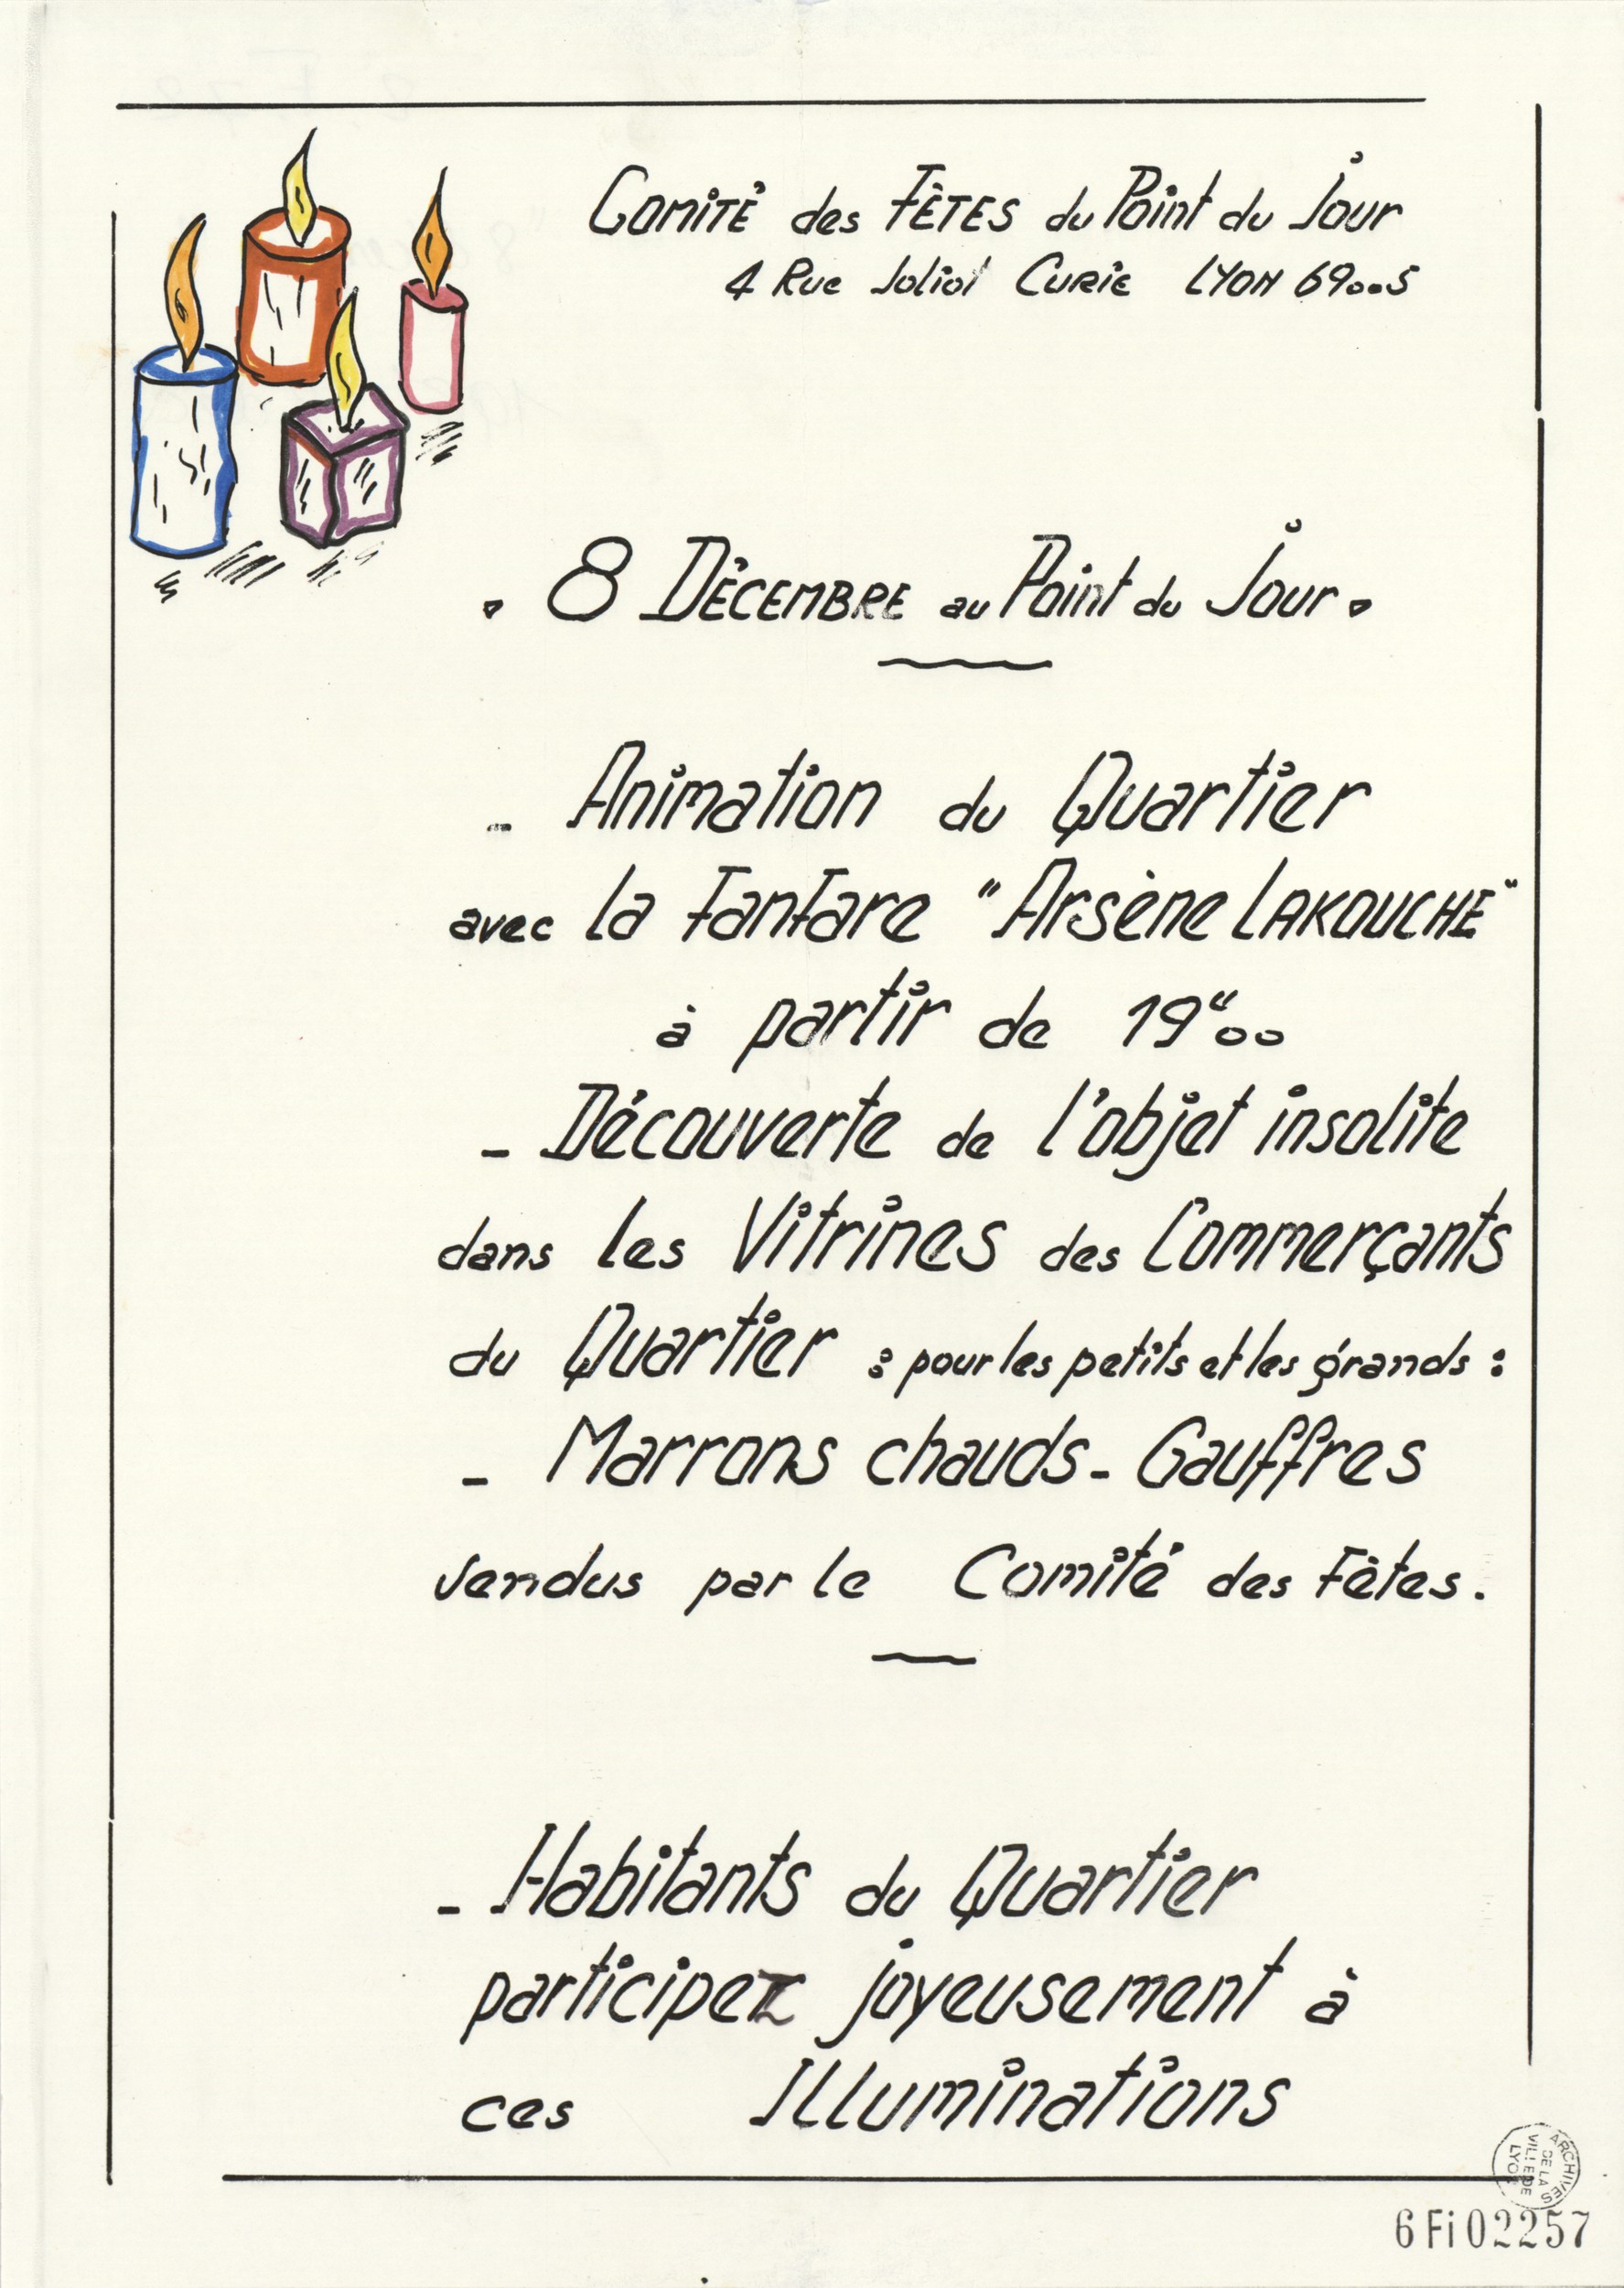 COMITÉ des FÊTES du Point du Jour
4 Rue Joliot CURIE LYON 69005
. 8 DÉCEMBRE au Point du Jour .
- Animation du Quartier
avec la Fanfare "Arsène LAKOUCHE"
à partir de 19"00
- Découverte de l'objet insolite
dans les Vitrines des Commerçants
du Quartier : pour les petits et les grands :
- Marrons chauds - Gauffres
vendus par le Comité des Fêtes.
- Habitants du Quartier
participez joyeusement à
ces Illuminations
ARCHIVES DE LA VILLE DE LYON
6 Fi 02257